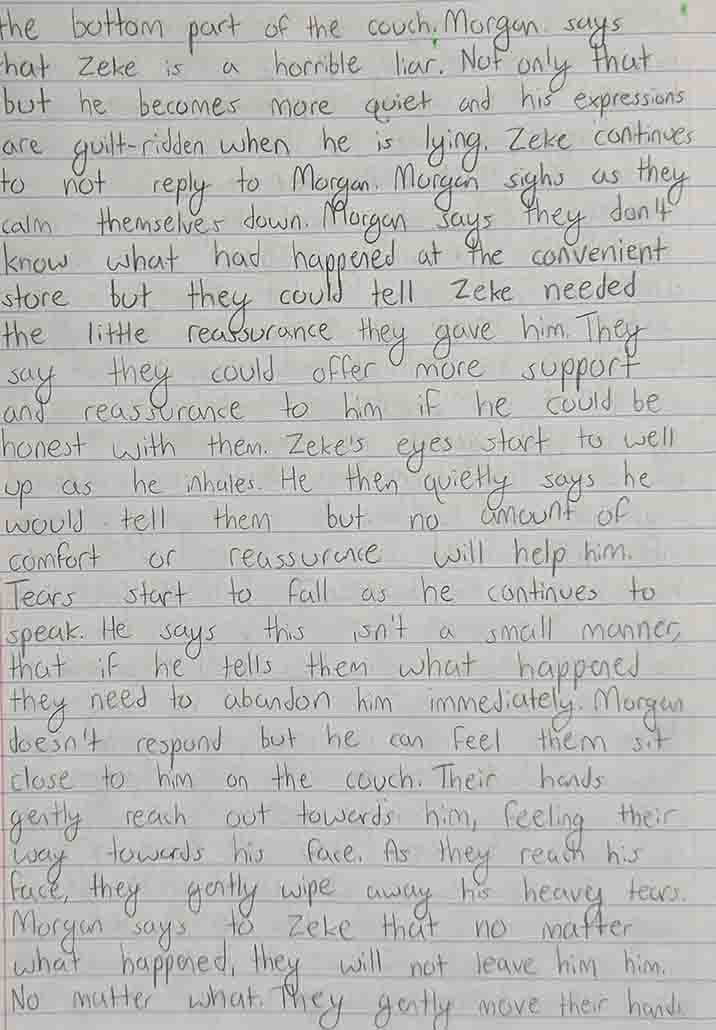 the bottom part of the couch. Morgan says
hat Zeke is a horrible liar. Not only that
but he becomes more quiet and his expressions
are guilt-ridden when he is lying. Zeke continues
to not reply to Morgan. Morgan sighs as they
calm themselves down. Morgan says they don't
know what had happened at the convenient
store but they could tell Zeke needed
the little reassurance they gave him. They
say they could offer more support
and reassurance to him if he could be
honest with them. Zeke's eyes start to well
up as he inhales. He then quietly says he
would tell them but no amount of
comfort or reassurance will help him.
Tears start to fall as he continues to
speak. He says this isn't a small manner,
that if he tells them what happened
they need to abandon him immediately. Morgan
doesn't respond but he can feel them sit
close to him on the couch. Their hands
gently reach out towards him, feeling their
way towards his face. As they reach his
face, they gently wipe away his heavy tears.
Morgan says to Zeke that no matter
what happened, they will not leave him him.
No matter what. They gently move their hands